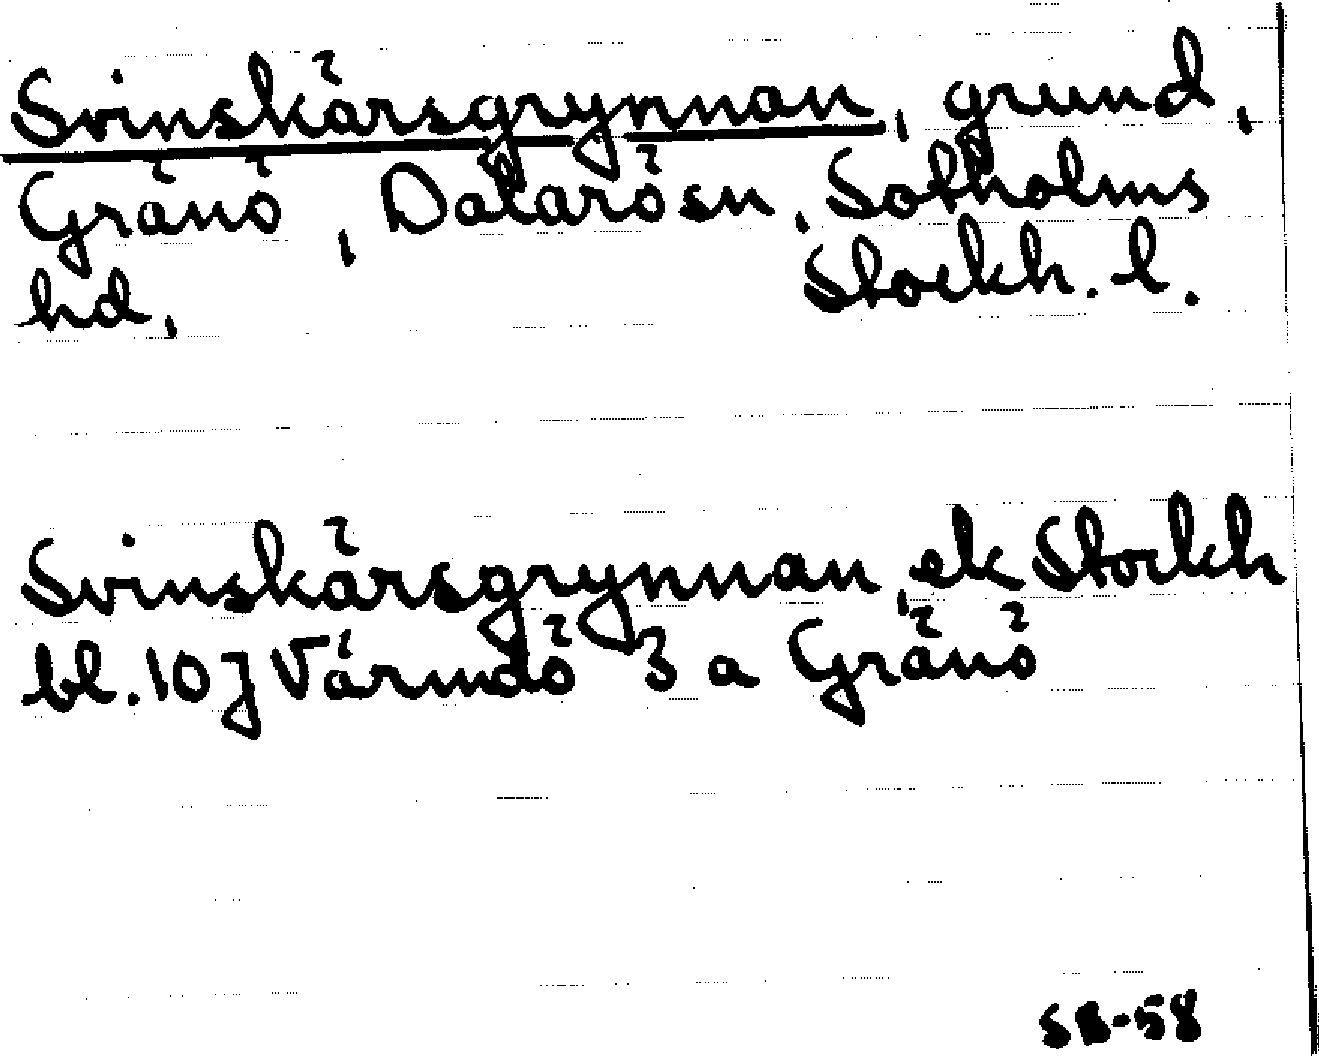 Svinskärsgrynnan, grund,
Gränö, Dalarö sn, Sotholms
hd, Stockh. l.
Svinskärsgrynnan, ek Stockh
bl. 10 J Värmdö 3 a Gränö
SB-58